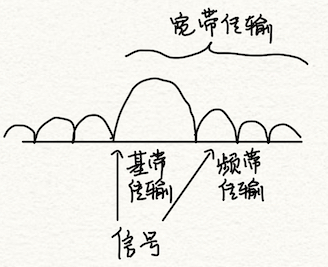 宽带传输
基带
传输
频带
传输
信号